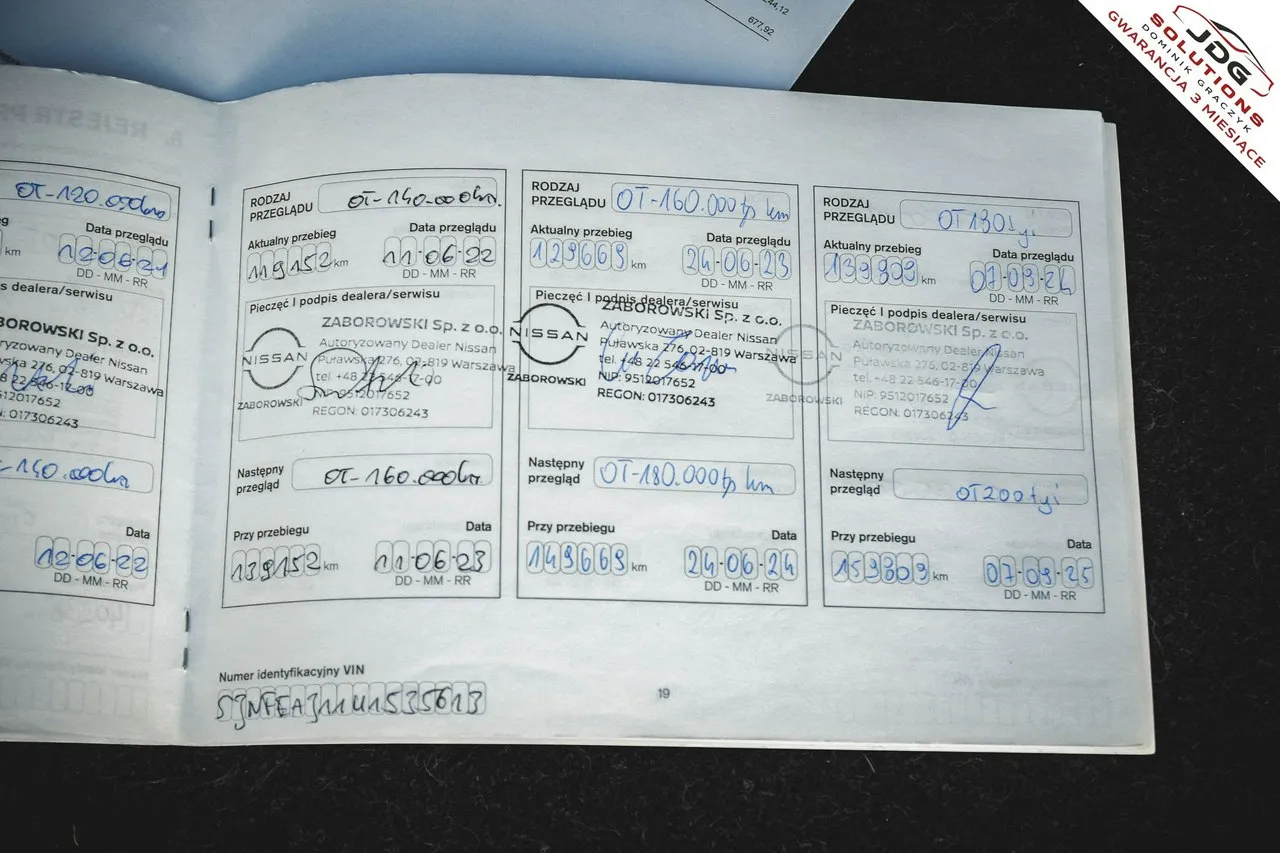 44,12
677,92
JDG
SOLUTIONS
DOMINIK GRACZYK
GWARANCJA 3 MIESIĄCE
OT-120.000km
Data przeglądu
km
12-06-21
DD - MM - RR
dealera/serwisu
BOROWSKI Sp. z o.o.
ryzowany Dealer Nissan
wska 276, 02-819 Warszawa
8 22 546-17-00
512017652
N: 017306243
-140.000km
Data
12-06-22
DD - MM - RR
RODZAJ
PRZEGLĄDU
OT-140.000km.
Aktualny przebieg
Data przeglądu
119152 km
11-06-22
DD - MM - RR
Pieczęć I podpis dealera/serwisu
NISSAN
ZABOROWSKI
ZABOROWSKI Sp. z o.o.
Autoryzowany Dealer Nissan
Puławska 276, 02-819 Warszawa
tel. +48 22 546-17-00
NIP: 9512017652
REGON: 017306243
Następny
przegląd
OT-160.000km.
Przy przebiegu
Data
139152 km
11-06-23
DD - MM - RR
RODZAJ
PRZEGLĄDU
OT-160.000tp km
Aktualny przebieg
Data przeglądu
129669 km
24-06-23
DD - MM - RR
Pieczęć I podpis dealera/serwisu
NISSAN
ZABOROWSKI
ZABOROWSKI Sp. z o.o.
Autoryzowany Dealer Nissan
Puławska 276, 02-819 Warszawa
tel. +48 22 546-17-00
NIP: 9512017652
REGON: 017306243
Następny
przegląd
OT-180.000tp km
Przy przebiegu
Data
149669 km
24-06-24
DD - MM - RR
RODZAJ
PRZEGLĄDU
Aktualny przebieg
Data przeglądu
139809 km
07-09-24
DD - MM - RR
Pieczęć I podpis dealera/serwisu
NISSAN
ZABOROWSKI
ZABOROWSKI Sp. z o.o.
Autoryzowany Dealer Nissan
Puławska 276, 02-819 Warszawa
tel. +48 22 546-17-00
NIP: 9512017652
REGON: 017306243
Następny
przegląd
OT200tyi
Przy przebiegu
Data
159809 km
07-09-25
DD - MM - RR
Numer identyfikacyjny VIN
SJNFEAJ11U1535613
19